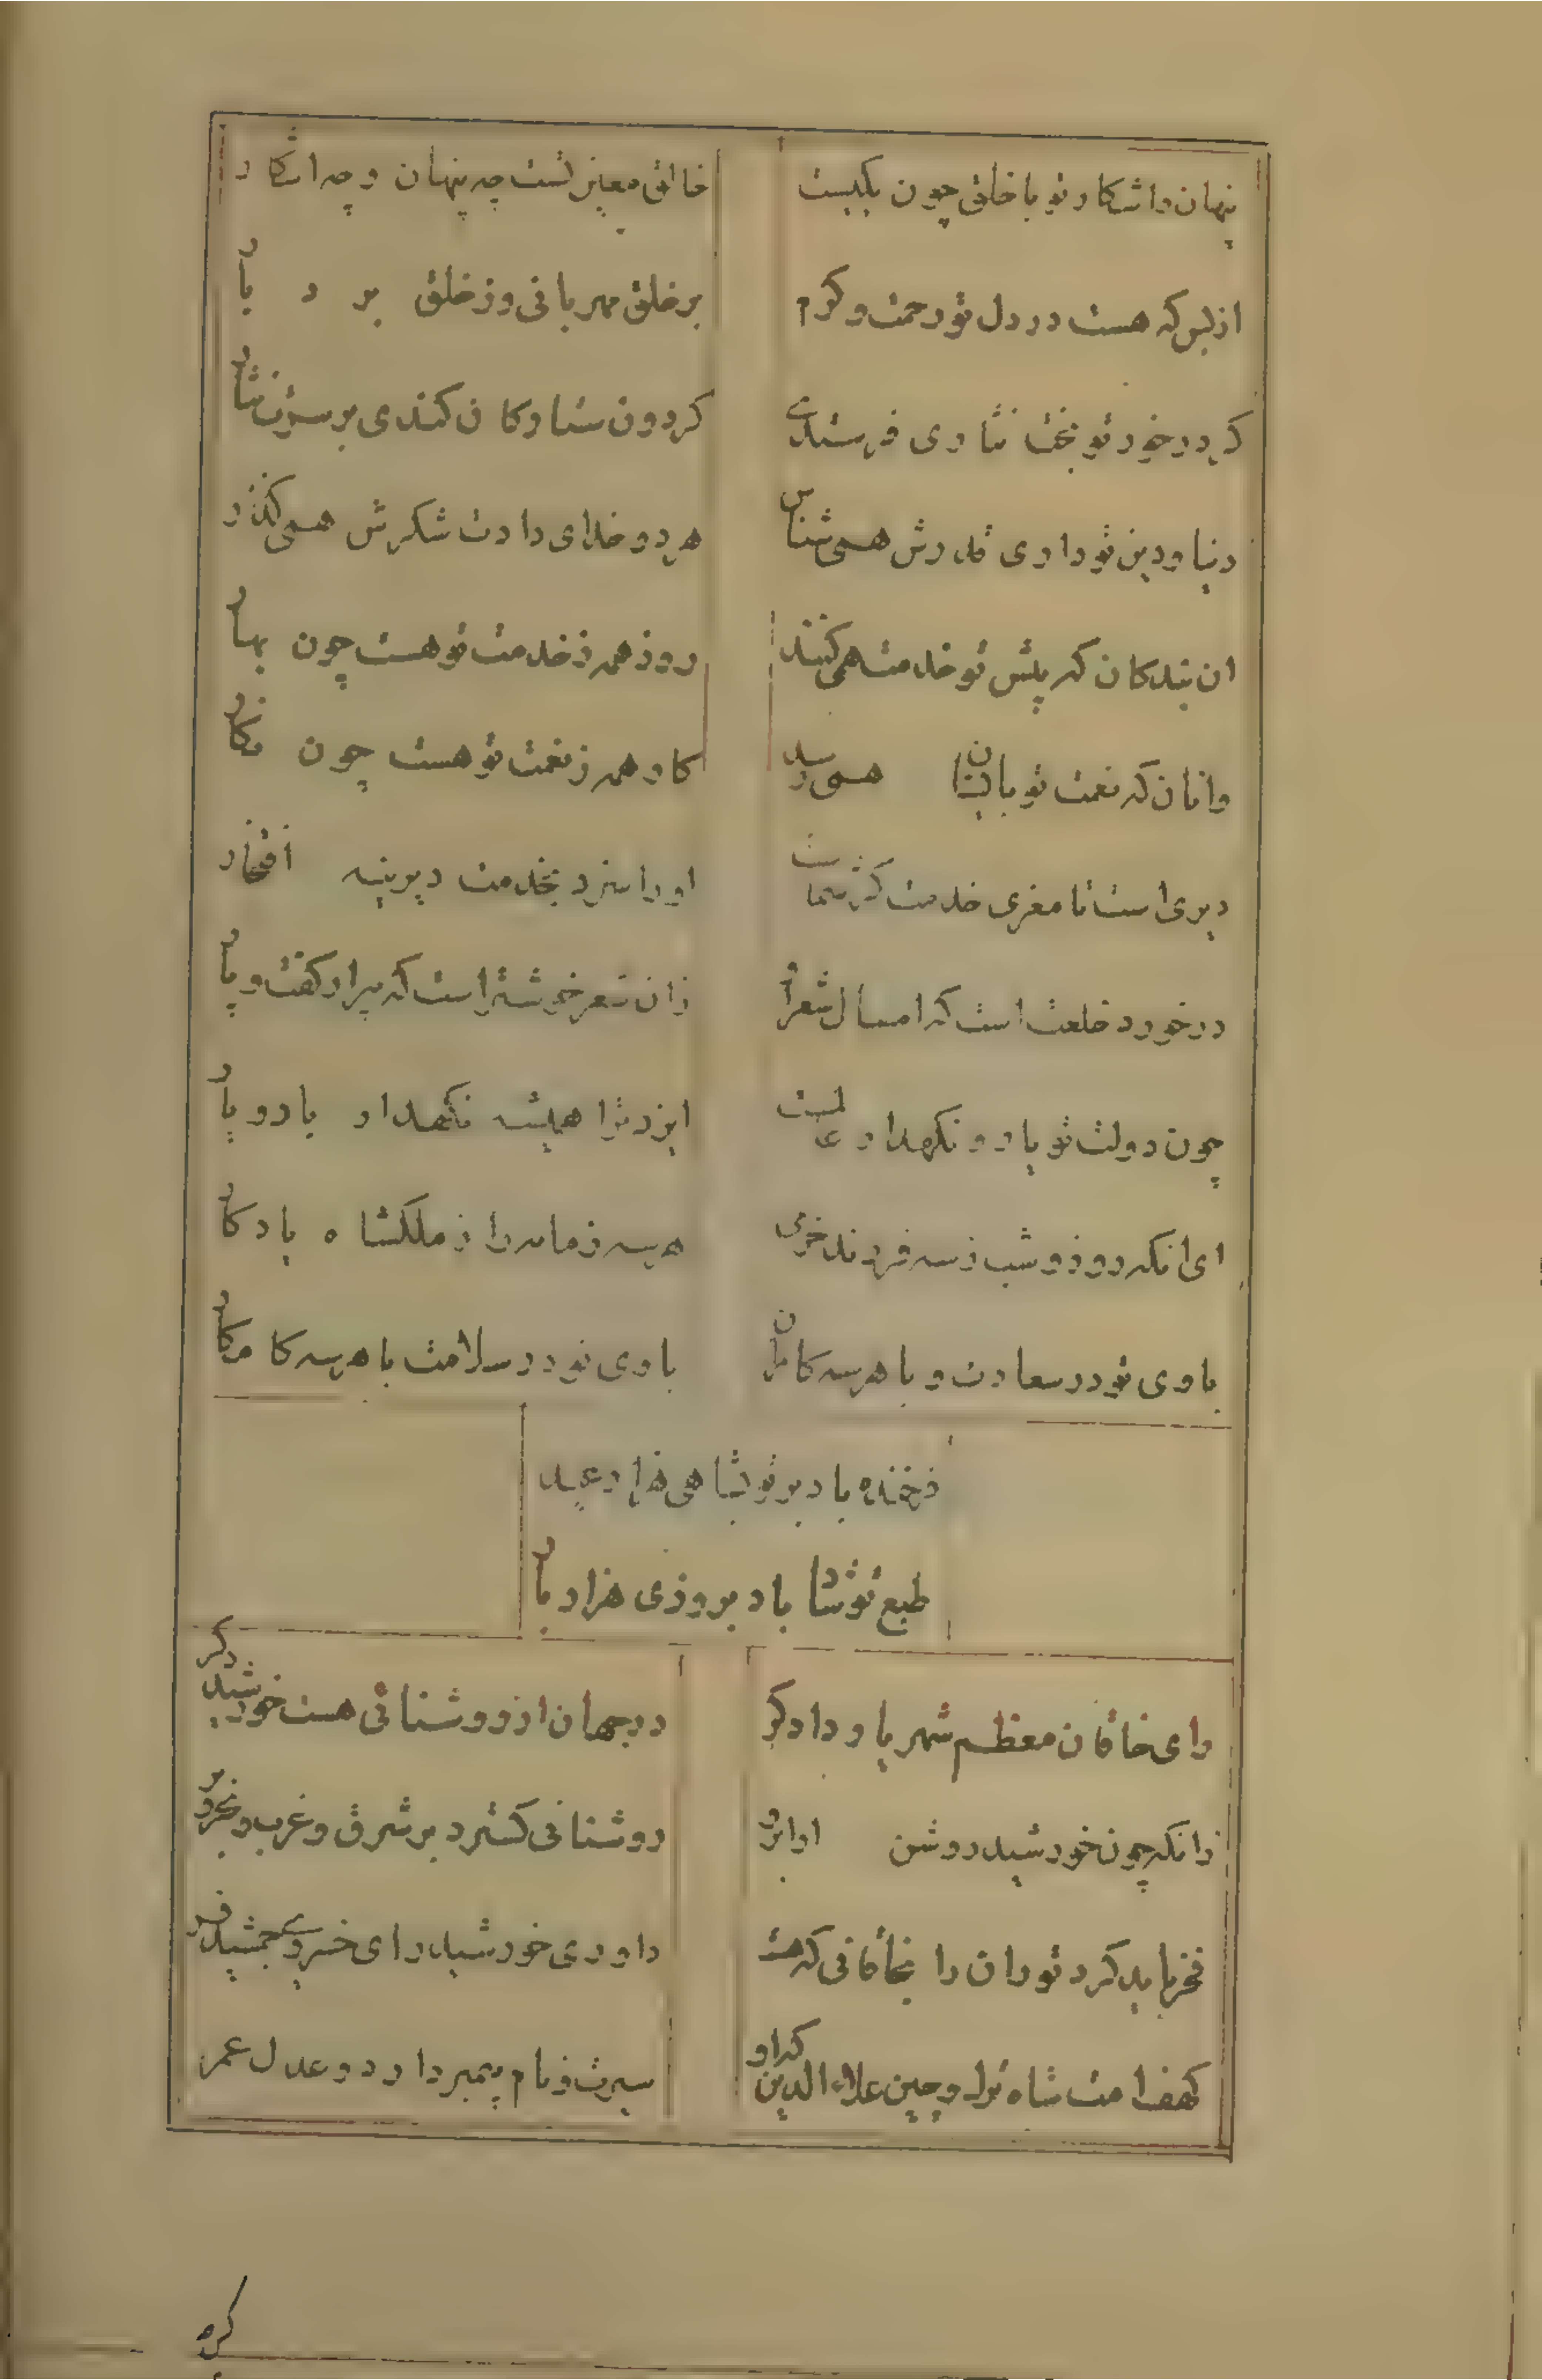 پنهان و اشکار تو با خلق چون یکیست
خالق معین تست چه پنهان و چه اشکار
از بس که هست در دل تو رحمت و کرم
بر خلق مهربانی وز خلق بردبار
کر در خور تو بخت نثاری فرستدی
کردون ستارکان کندی بر سرت نثار
دنیا و دین تو داری قدرش همی شناس
هر دو خدای دادت شکرش همی کذار
ان بندکان که پیش تو خدمت همی کنند
روز همه ز خدمت تو هست چون بهار
وانان که نعمت تو بایشان همی رسد
کار همه ز نعمت تو هست چون نکار
دیری است تا معزی خدمتکر شماست
او را سزد بخدمت دیرینه افتخار
در خورد خلعت است که امسال شعر او
زان شعر خوشتر است که پیرار کفت و پار
چون دولت تو یار و نکهدار عالمست
ایزد ترا همیشه نکهدار باد و یار
ای انکه روز و شب ز سه فرزند خرمی
هر سه زمانه را ز ملکشاه یادکار
بادی تو در سعادت و با هر سه کامران
بادی تو در سلامت با هر سه کامکار
فرخنده باد بر تو بشاهی هزار عید
طبع تو شاد باد بروزی هزار بار
رای خاقان معظم شهریار دادکر
در جهان از روشنائی هست خورشید دکر
زانکه چون خورشید روشن او
روشنائی کسترد بر شرق و غرب و بحر و بر
فخر باید کرد توران را بخاقانی که هست
داوری خورشید رای خسروی جمشید فر
کهف امت شاه توران و چین علاء الدین که او
سیرت و نام پیمبر دارد و عدل عمر
کره